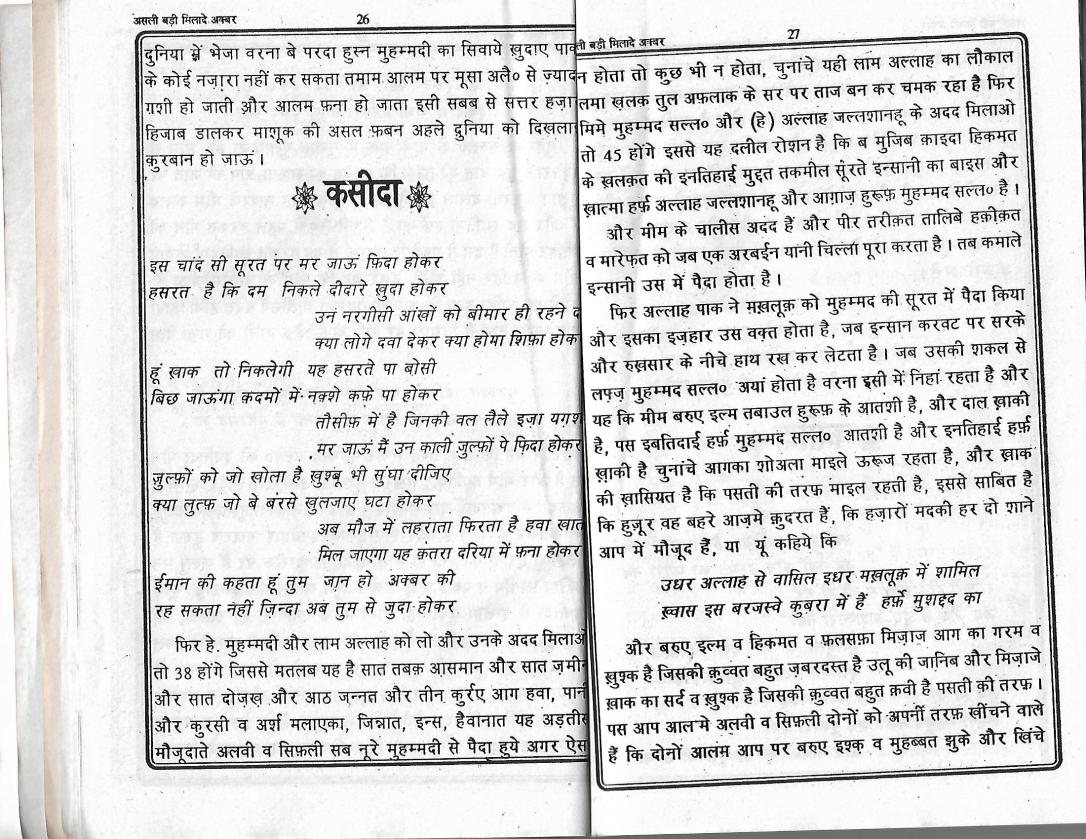 असली बड़ी मिलादे अक्बर 26
दुनिया में भेजा वरना बे परदा हुस्न मुहम्मदी का सिवाये ख़ुदाए
के कोई नज़ारा नहीं कर सकता तमाम आलम पर मूसा अलै० से
ग़शी हो जाती और आलम फ़ना हो जाता इसी सबब से सत्तर
हिजाब डालकर माशूक की असल फ़बन अहले दुनिया को
क़ुरबान हो जाऊं ।
कसीदा
इस चांद सी सूरत पर मर जाऊं फ़िदा होकर
हसरत है कि दम निकले दीदारे ख़ुदा होकर
उनं नरगीसी आंखों को बीमार ही रहने
क्या लोगे दवा देकर क्या होमा शिफ़ा
हूं ख़ाक तो निकलेगी यह हसरते पा बोसी
बिछ जाऊंगा क़दमों में नक़्शे कफ़े पा होकर
तौसीफ़ में है जिनकी वल लैले इज़ा
मर जाऊं मैं उन काली ज़ुल्फ़ों पे फ़िदा होकर
ज़ुल्फ़ों को जो खोला है ख़ुश्बू भी सुंघा दीजिए
क्या लुत्फ़ जो बे बंरसे खुलजाए घटा होकर
अब मौज में लहराता फिरता है हवा
मिल जाएगा यह क़तरा दरिया में फ़ना होकर
ईमान की कहता हूं तुम जान हो अक्बर की
रह सकता नहीं ज़िन्दा अब तुम से जुदा होकर
फिर हे. मुहम्मदी और लाम अल्लाह को तो और उनके अदद
तो 38 होंगे जिससे मतलब यह है सात तबक़ आसमान और सात
और सात दोज़ख़ और आठ जन्नत और तीन कुर्रए आग हवा,
और कुरसी व अर्श मलाएका, जिन्नात, इन्स, हैवानात यह
मौजूदाते अलवी व सिफ़ली सब नूरे मुहम्मदी से पैदा हुये अगर
बड़ी मिलादे अक्बर 27
न होता तो कुछ भी न होता, चुनांचे यही लाम अल्लाह का लौकाल
लमा ख़लक तुल अफ़लाक के सर पर ताज बन कर चमक रहा है फिर
मिमे मुहम्मद सल्ल० और (हे) अल्लाह जल्लशानहू के अदद मिलाओ
तो 45 होंगे इससे यह दलील रोशन है कि ब मुजिब क़ाइदा हिकमत
के ख़लक़त की इंनतिहाई मुद्दत तकमील सूरते इन्सानी का बाइस और
ख़ात्मा हर्फ़ अल्लाह जल्लशानहू और आग़ाज़ हुरूफ़ मुहम्मद सल्ल० है ।
और मीम के चालीस अदद हैं और पीर तरीक़त तालिबे हक़ीक़त
व मारेफ़त को जब एक अरबईन यांनी चिल्ला पूरा करता है । तब कमाले
इन्सानी उस में पैदा होता है ।
फिर अल्लाह पाक ने मख़लूक़ को मुहम्मद की सूरत में पैदा किया
और इसका इज़हार उस वक़्त होता है, जब इन्सान करवट पर सरके
और रुख़सार के नीचे हाथ रख कर लेटता है । जब उसकी शकल से
लफ़्ज़ मुहम्मद सल्ल० अयां होता है वरना इसी में निहां रहता है और
यह कि मीम बरुए इल्म तबाउल हुरूफ़ के आतशी है, और दाल ख़ाकी
है, पस इबतिदाई हर्फ़ मुहम्मद सल्ल० आतशी है और इनतिहाई हर्फ़
ख़ाकी है चुनांचे आगका शोअला माइले ऊरूज रहता है, और ख़ाक
की ख़ासियत है कि पसती की तरफ़ माइल रहती है, इससे साबित है
कि हुज़ूर वह बहरे आज़मे क़ुदरत हैं, कि हज़ारों मदकी हर दो शाने
आप में मौजूद हैं, या यूं कहिये कि
उधर अल्लाह से वासिल इधर मख़लूक़ में शामिल
ख़्वास इस बरजस्वे कुबरा में हैं हर्फ़े मुशद्दद का
और बरुए इल्म व हिकमत व फ़लसफ़ा मिज़ाज आग का गरम व
ख़ुश्क है जिसकी क़ुव्वत बहुत ज़बरदस्त है उलू की जानिब और मिज़ाजे
ख़ाक का सर्द व ख़ुश्क है जिसकी क़ुव्वत बहुत क़वी है पसती की तरफ़ ।
पस आप आलमे अलवी व सिफ़ली दोनों को अपनी तरफ़ खींचने वाले
हैं कि दोनों आलम आप पर बरुए इश्क़ व मुहब्बत झुके और खिंचे